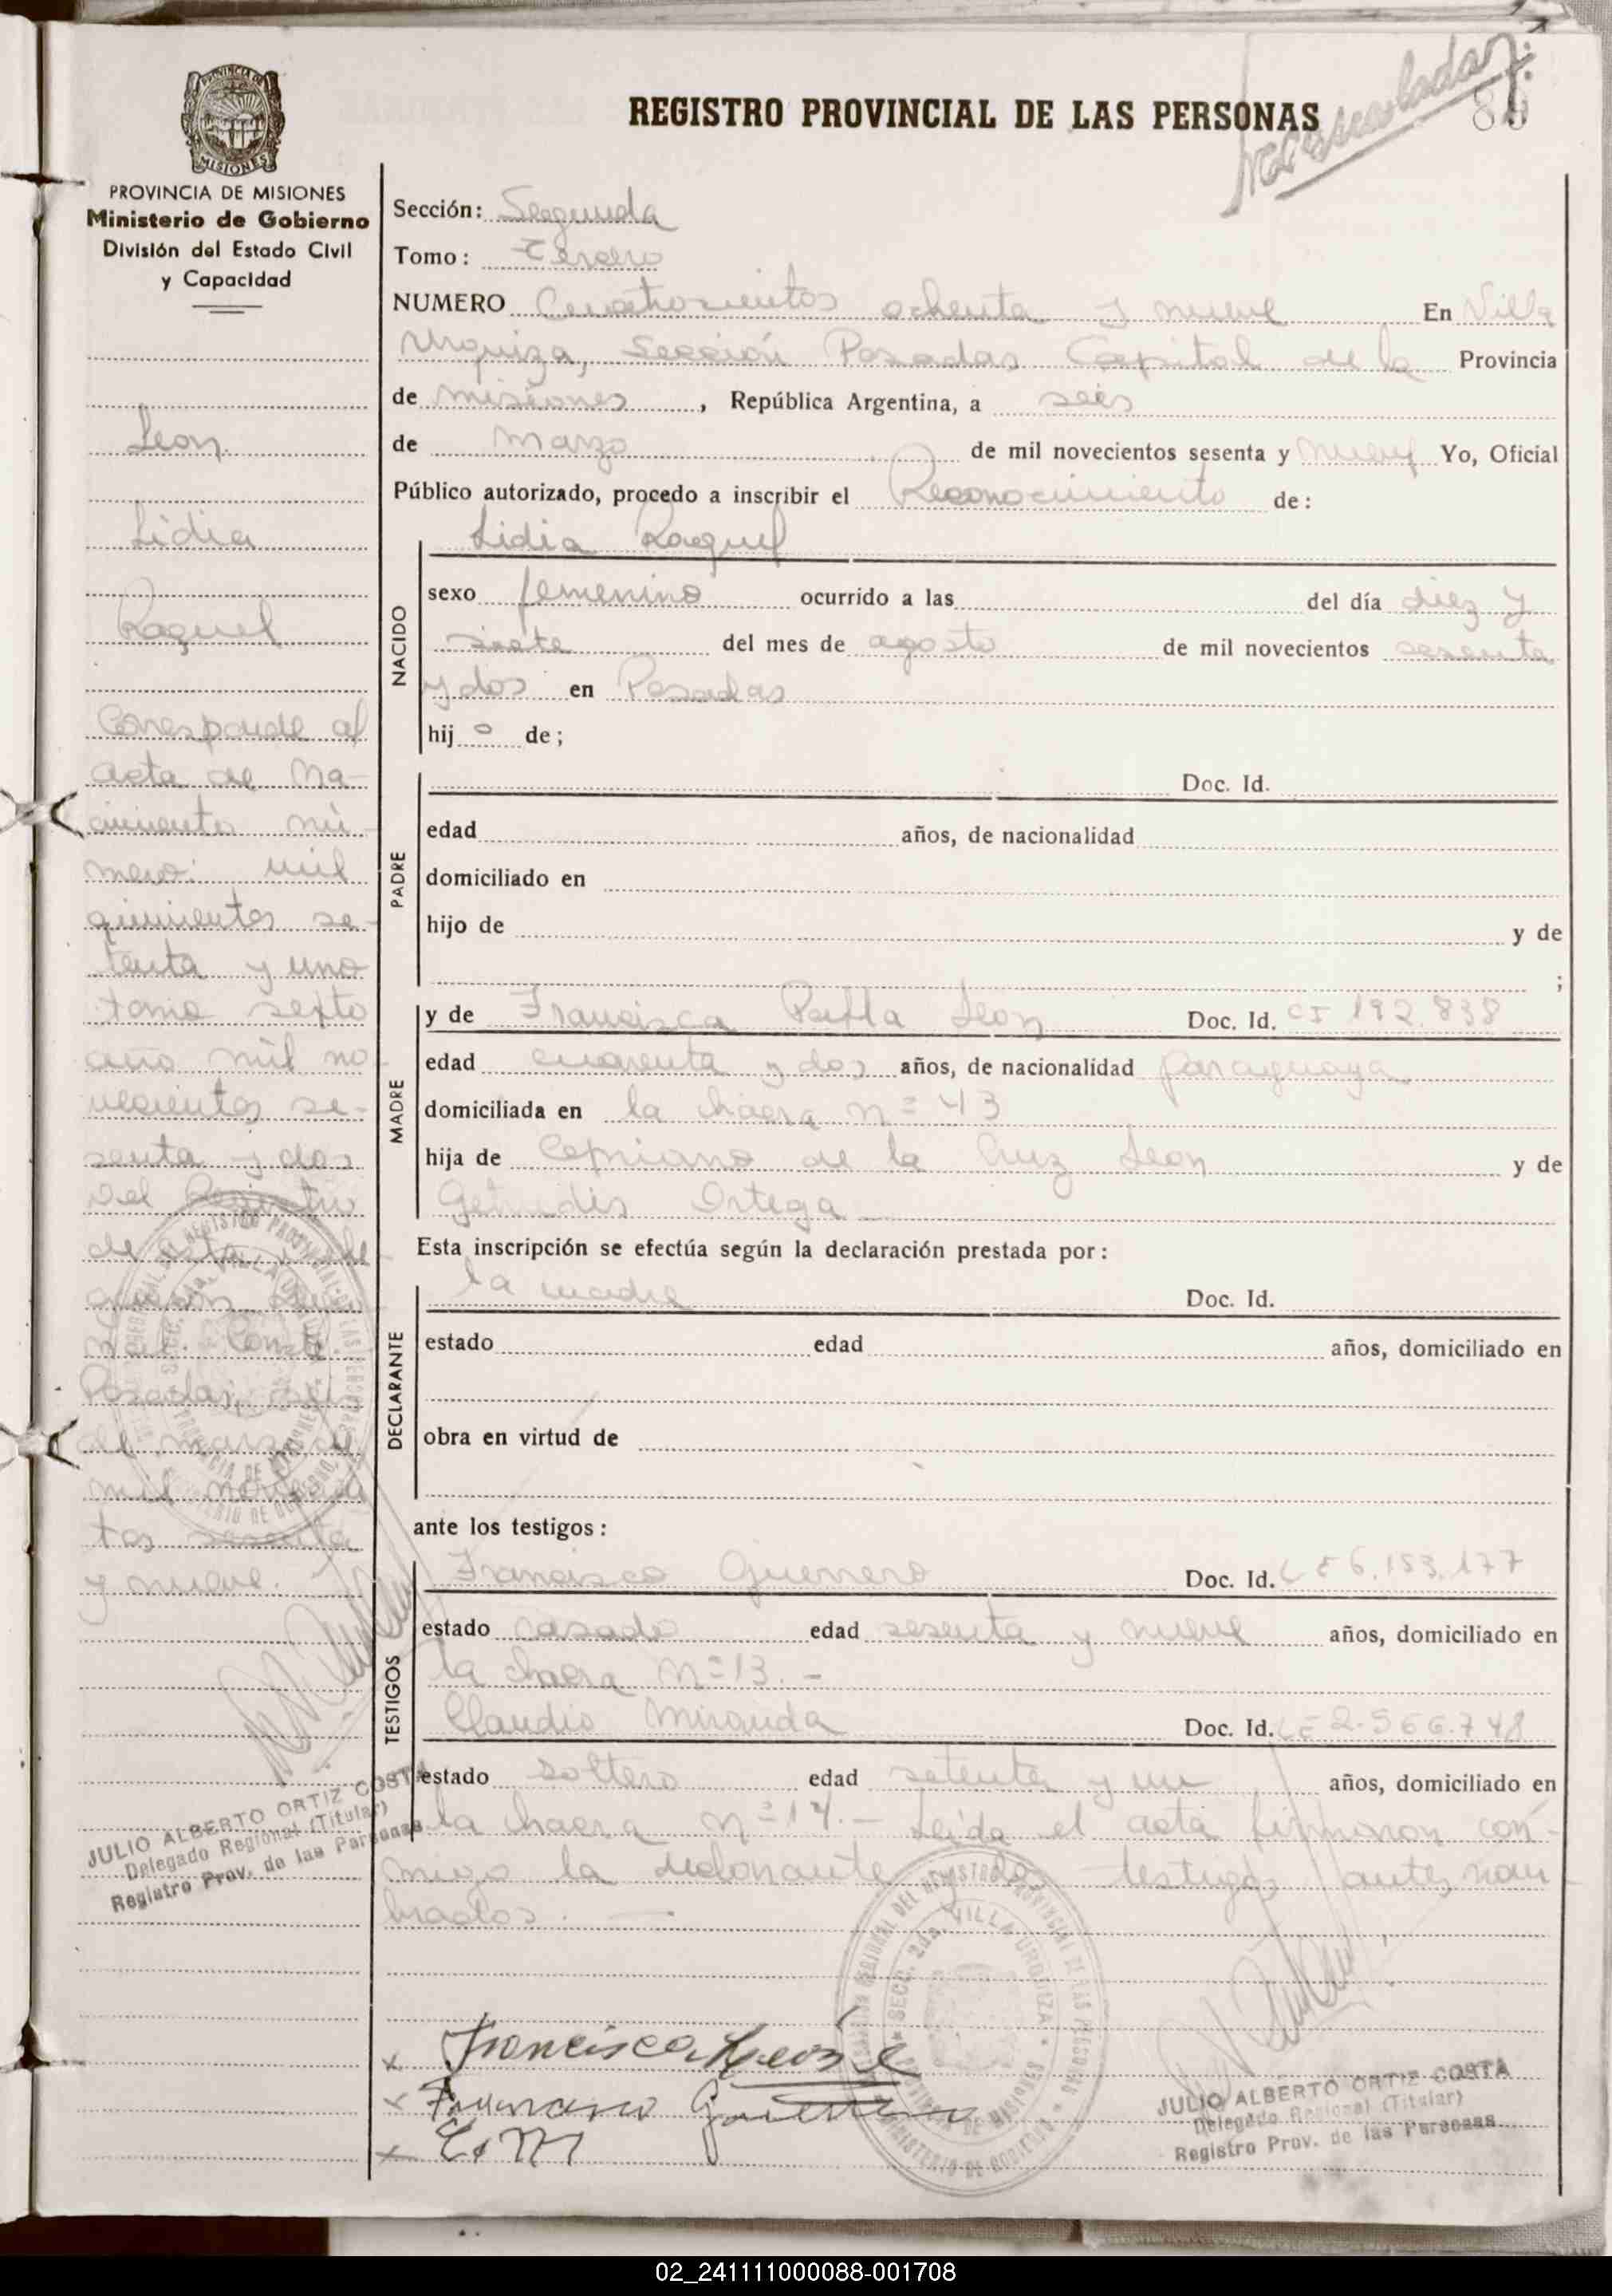 REGISTRO PROVINCIAL DE LAS PERSONAS
PROVINCIA DE MISIONES
Ministerio de Gobierno
División del Estado Civil
y Capacidad
Leon
Lidia
Raquel
Corresponde al
acta de Na-
cimiento nú-
mero: mil
quinientos se-
tenta y uno
tomo sexto
año mil no-
vecientos se-
senta y dos
Del Registro
de esta
Posadas, seis
de marzo de
mil novecien
tos sesenta
y nueve.
JULIO ALBERTO ORTIZ COSTA
Delegado Regional (Titular)
Registro Prov. de las Personas
Sección: Segunda
Tomo: Tercero
NUMERO Cuatrocientos ochenta y nueve En Villa
Urquiza, Sección Posadas Capital de la Provincia
de misiones, República Argentina, a seis
de marzo de mil novecientos sesenta y nueve Yo, Oficial
Público autorizado, procedo a inscribir el Reconocimiento de:
NACIDO
Lidia Raquel
sexo femenino ocurrido a las del día diez y
siete del mes de agosto de mil novecientos sesenta
y dos en Posadas
hij o de;
PADRE
Doc. Id.
edad años, de nacionalidad
domiciliado en
hijo de y de
;
MADRE
y de Francisca Leon Doc. Id. CI 192.838
edad cuarenta y dos años, de nacionalidad paraguaya
domiciliada en la chacra nº 43
hija de Cipriano de la Cruz Leon y de
Getrudis Ortega
Esta inscripción se efectúa según la declaración prestada por:
DECLARANTE
la madre Doc. Id.
estado edad años, domiciliado en
obra en virtud de
ante los testigos:
TESTIGOS
Francisco Guerrero Doc. Id. LE 6.153.177
estado casado edad sesenta y nueve años, domiciliado en
la chacra Nº 13. -
Claudio Miranda Doc. Id. LE 2.566.748
estado soltero edad setenta y un años, domiciliado en
la chacra Nº 14. - Leida el acta firmaron con-
migo la declarante y los testigos antes nom
brados. —
x Francisca Leon
x Francisco Guerrero
x C. M
SECC. 2da. VILLA URQUIZA
PROVINCIA DE MISIONES
MINISTERIO DE GOBIERNO
JULIO ALBERTO ORTIZ COSTA
Delegado Regional (Titular)
Registro Prov. de las Personas
02_241111000088-001708